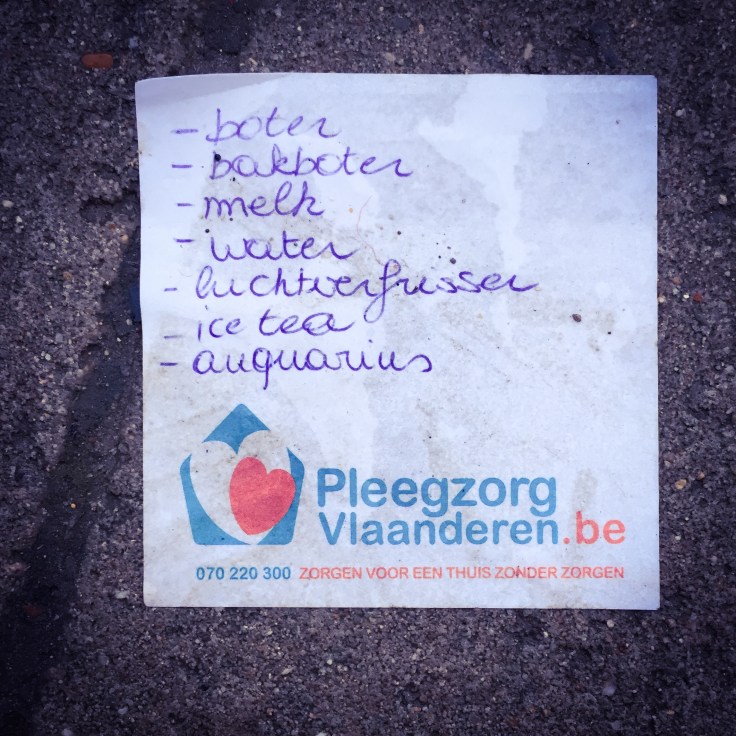 - boter
- bakboter
- melk
- water
- luchtverfrisser
- ice tea
- auquarius
Pleegzorg
Vlaanderen.be
070 220 300 ZORGEN VOOR EEN THUIS ZONDER ZORGEN